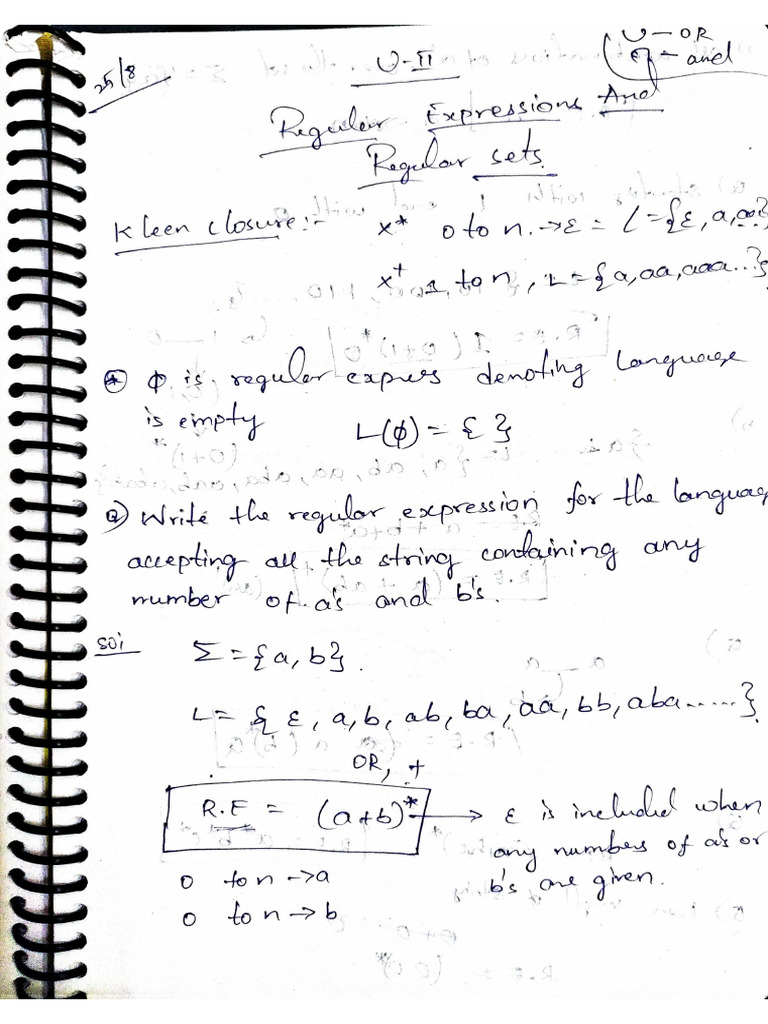 25/8
U-II
U - OR
∩ - and
Regular Expressions And
Regular sets.
Kleen closure:- x* 0 to n. → ε = L = {ε, a, aa..}
x+ 1 to n, L = {a, aa, aaa...}
* ϕ is regular expres denoting language
is empty L(ϕ) = { }
Q) Write the regular expression for the language
accepting all the string containing any
number of a's and b's.
Sol
Σ = {a, b}.
L = { ε, a, b, ab, ba, aa, bb, aba......}
OR, +
R.E = (a+b)* → ε is included when
any numbers of a's or
b's are given.
0 to n → a
0 to n → b